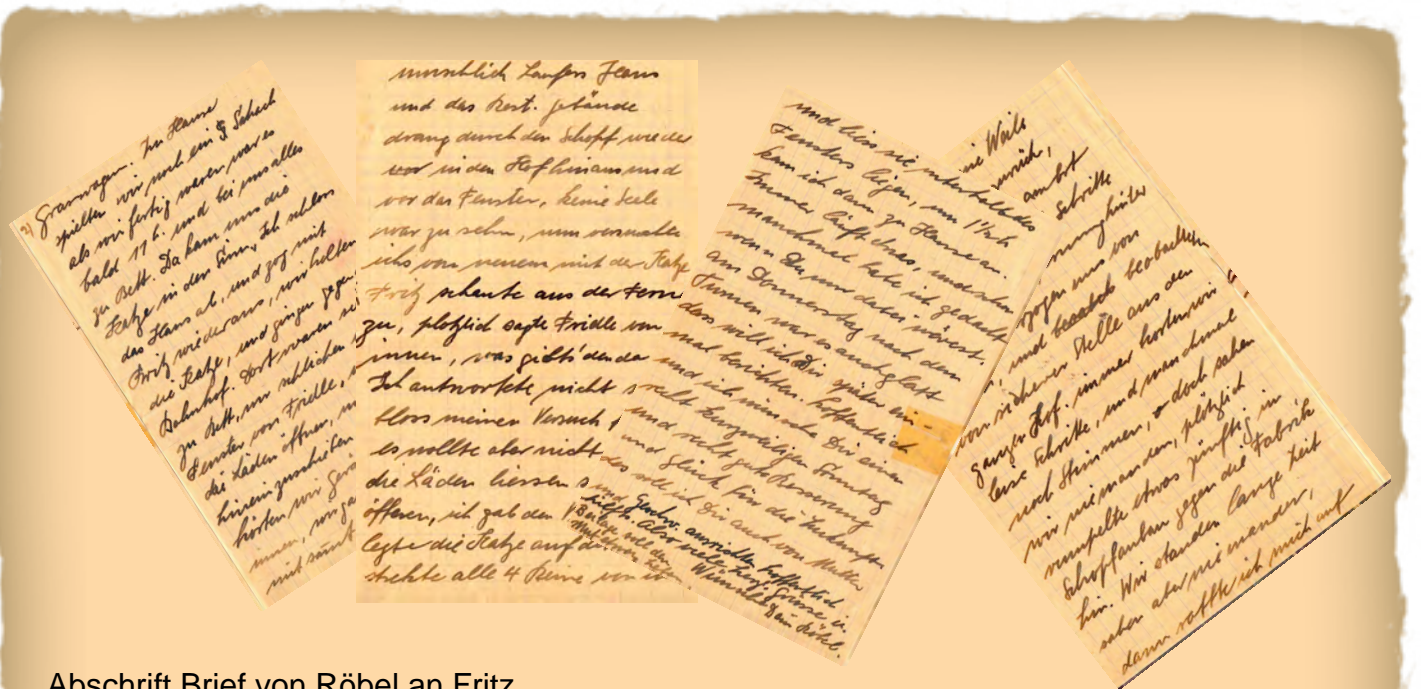 2) Granwagen. Im Hause
spielten wir noch ein Schach
als wir fertig waren war es
bald 11 h. und bei uns alles
zu Bett. Da kam uns die
Katze in den Sinn, Ich schloss
das Haus ab, und zog mit
Fritz wieder aus, wir holten
die Katze, und gingen gegen
Bahnhof. Dort waren
zu Bett, wir schlichen
Fenster von Fridle,
die Läden öffnen,
hinein zuschieben
hörten wir
innen,
mit samt
Laufers Jeans
und das Rest. gebäude
drang durch den Schopf wieder
vor in den Hof hinaus und
vor das Fenster, keine Seele
war zu sehn, nun versuchte
ichs von neuem mit der Katze
Fritz schaute aus der Ferne
zu, plötzlich sagte Fridle von
innen, was giebts' denn da
Ich antwortete nicht
bloss meinen Versuch
es wollte aber nicht
die Läden liessen
öffnen, ich gab den
legte die Katze auf
streckte alle 4 Beine von
und liess sie unterhalb des
Fensters liegen, um 1½ h
kam ich dann zu Hause an.
Immer läuft etwas, und schon
manchmal habe ich gedacht
wen Du nur dabei wärest,
am Donnerstag nach dem
Turnen war es auch glatt
dass will ich Dir später ein-
mal berichten. Hoffentlich
und ich wünsche Dir einen
recht kurzweiligen Sonntag
und recht gute Besserung
und Glück für die Zukunft
das soll ich Dir auch von Mutter
und Geschw. ausrichten hoffentlich
also viele herzl. Grüsse u.
Wünsche Dein Röbel.
eine Weile
mich,
Schritte
hinter
zogen uns von
und beobachteten
von sicherer Stelle aus den
ganzen Hof. immer hörten wir
leise Schritte, und manchmal
noch Stimmen, doch sahen
wir niemanden, plötzlich
rumpelte etwas zünftig in
Schopfanbau gegen die Fabrik
hin. Wir standen lange Zeit
sahen aber niemanden,
dann raffte ich mich auf
Abschrift Brief von Röbel an Fritz